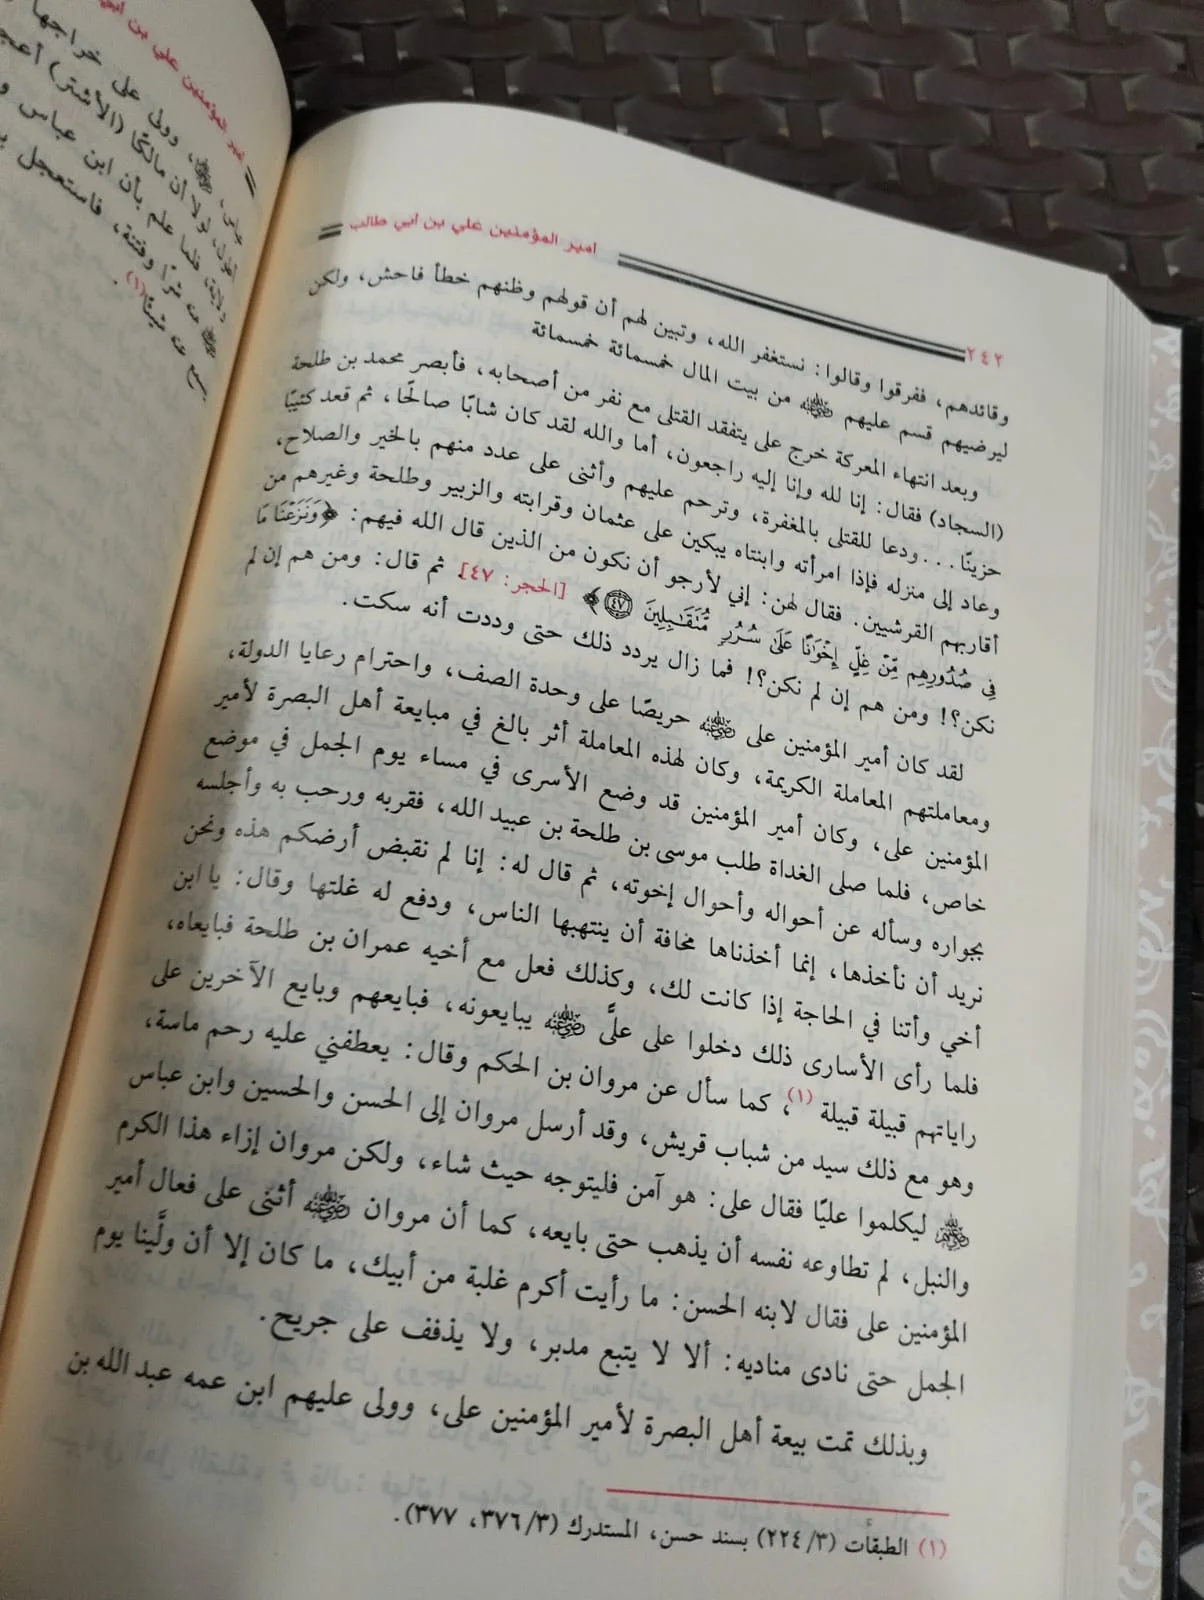 أمير المؤمنين علي بن أبي طالب
٢٤٢
وقائدهم، ففرقوا وقالوا: نستغفر الله، وتبين لهم أن قولهم وظنهم خطأ فاحش، ولكن
ليرضيهم قسم عليهم ﵁ من بيت المال خمسمائة خمسمائة
وبعد انتهاء المعركة خرج على يتفقد القتلى مع نفر من أصحابه، فأبصر محمد بن طلحة
(السجاد) فقال: إنا لله وإنا إليه راجعون، أما والله لقد كان شابًا صالحًا، ثم قعد كئيبًا
حزينًا... ودعا للقتلى بالمغفرة، وترحم عليهم وأثنى على عدد منهم بالخير والصلاح،
وعاد إلى منزله فإذا امرأته وابنتاه يبكين على عثمان وقرابته والزبير وطلحة وغيرهم من
أقاربهم القرشيين. فقال لهن: إني لأرجو أن نكون من الذين قال الله فيهم: ﴿وَنَزَعْنَا مَا
فِي صُدُورِهِم مِّنْ غِلٍّ إِخْوَانًا عَلَى سُرُرٍ مُّتَقَابِلِينَ ٤٧﴾ [الحجر: ٤٧]. ثم قال: ومن هم إن لم
نكن؟! ومن هم إن لم نكن؟! فما زال يردد ذلك حتى وددت أنه سكت.
لقد كان أمير المؤمنين على ﵁ حريصًا على وحدة الصف، واحترام رعايا الدولة،
ومعاملتهم المعاملة الكريمة، وكان لهذه المعاملة أثر بالغ في مبايعة أهل البصرة لأمير
المؤمنين على، وكان أمير المؤمنين قد وضع الأسرى في مساء يوم الجمل في موضع
خاص، فلما صلى الغداة طلب موسى بن طلحة بن عبيد الله، فقربه ورحب به وأجلسه
بجواره وسأله عن أحواله وأحوال إخوته، ثم قال له: إنا لم نقبض أرضكم هذه ونحن
نريد أن نأخذها، إنما أخذناها مخافة أن ينتهبها الناس، ودفع له غلتها وقال: يا ابن
أخي وأتنا في الحاجة إذا كانت لك، وكذلك فعل مع أخيه عمران بن طلحة فبايعاه،
فلما رأى الأسارى ذلك دخلوا على علىًّ ﵁ يبايعونه، فبايعهم وبايع الآخرين على
راياتهم قبيلة قبيلة (١)، كما سأل عن مروان بن الحكم وقال: يعطفني عليه رحم ماسة،
وهو مع ذلك سيد من شباب قريش، وقد أرسل مروان إلى الحسن والحسين وابن عباس
﵃ ليكلموا عليًا فقال على: هو آمن فليتوجه حيث شاء، ولكن مروان إزاء هذا الكرم
والنبل، لم تطاوعه نفسه أن يذهب حتى بايعه، كما أن مروان ﵁ أثنى على فعال أمير
المؤمنين على فقال لابنه الحسن: ما رأيت أكرم غلبة من أبيك، ما كان إلا أن ولَّينا يوم
الجمل حتى نادى مناديه: ألا لا يتبع مدبر، ولا يذفف على جريح.
وبذلك تمت بيعة أهل البصرة لأمير المؤمنين على، وولى عليهم ابن عمه عبد الله بن
(١) الطبقات (٢٢٤/٣) بسند حسن، المستدرك (٣٧٦/٣، ٣٧٧).